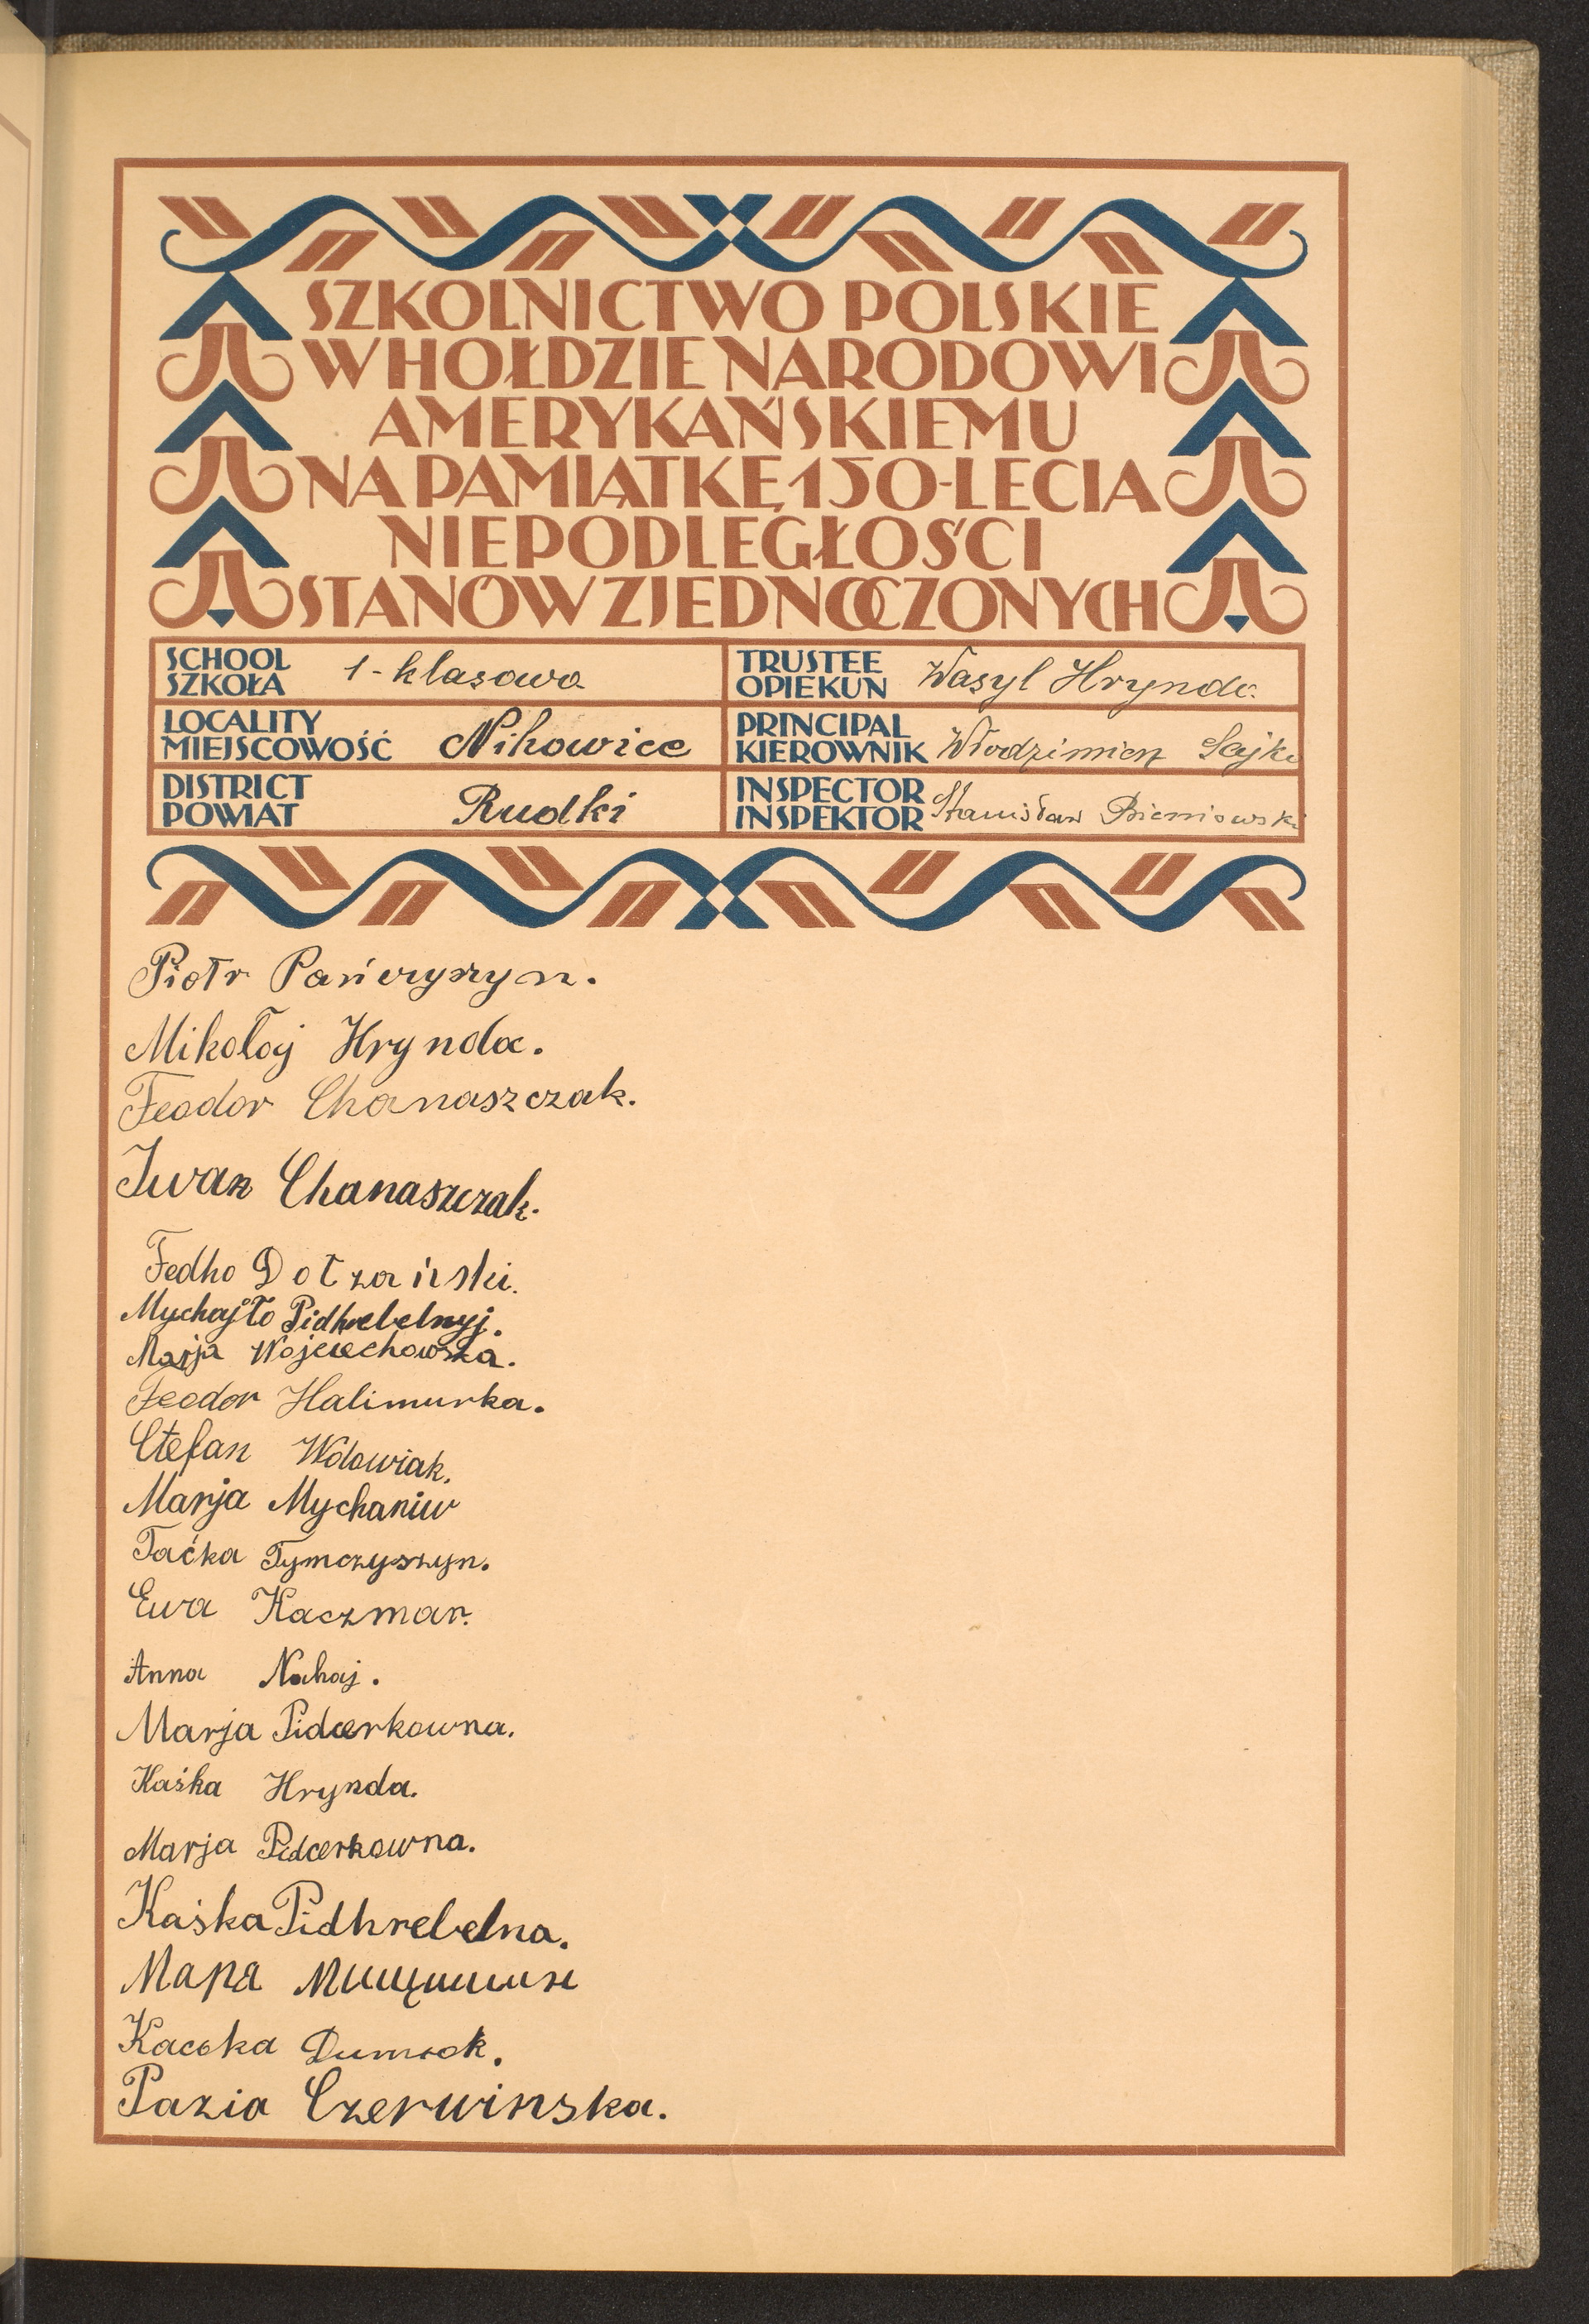 SZKOLNICTWO POLSKIE
W HOŁDZIE NARODOWI
AMERYKAŃSKIEMU
NA PAMIĄTKĘ 150-LECIA
NIEPODLEGŁOŚCI
STANÓW ZJEDNOCZONYCH
SCHOOL SZKOŁA 1-klasowa
TRUSTEE OPIEKUN Wasyl Hrynda
LOCALITY MIEJSCOWOŚĆ Nihowice
PRINCIPAL KIEROWNIK Włodzimierz Sajko
DISTRICT POWIAT Rudki
INSPECTOR INSPEKTOR Stanisław Bieniowski
Piotr Pańczyszyn.
Mikołaj Hrynda.
Feodor Chanaszczak.
Iwan Chanaszczak.
Fedko Dołzański.
Mychajło Pidhrebelnyj.
Marja Wojciechowska.
Feodor Halimurka.
Stefan Wdowiak.
Marja Mychaniw
Taćka Tymczyszyn.
Ewa Kaczmar.
Anna Nahaj.
Marja Pidcerkowna.
Kaśka Hrynda.
Marja Pidcerkowna.
Kaśka Pidhrebelna.
Маря
Kacśka
Pazia Czerwinska.